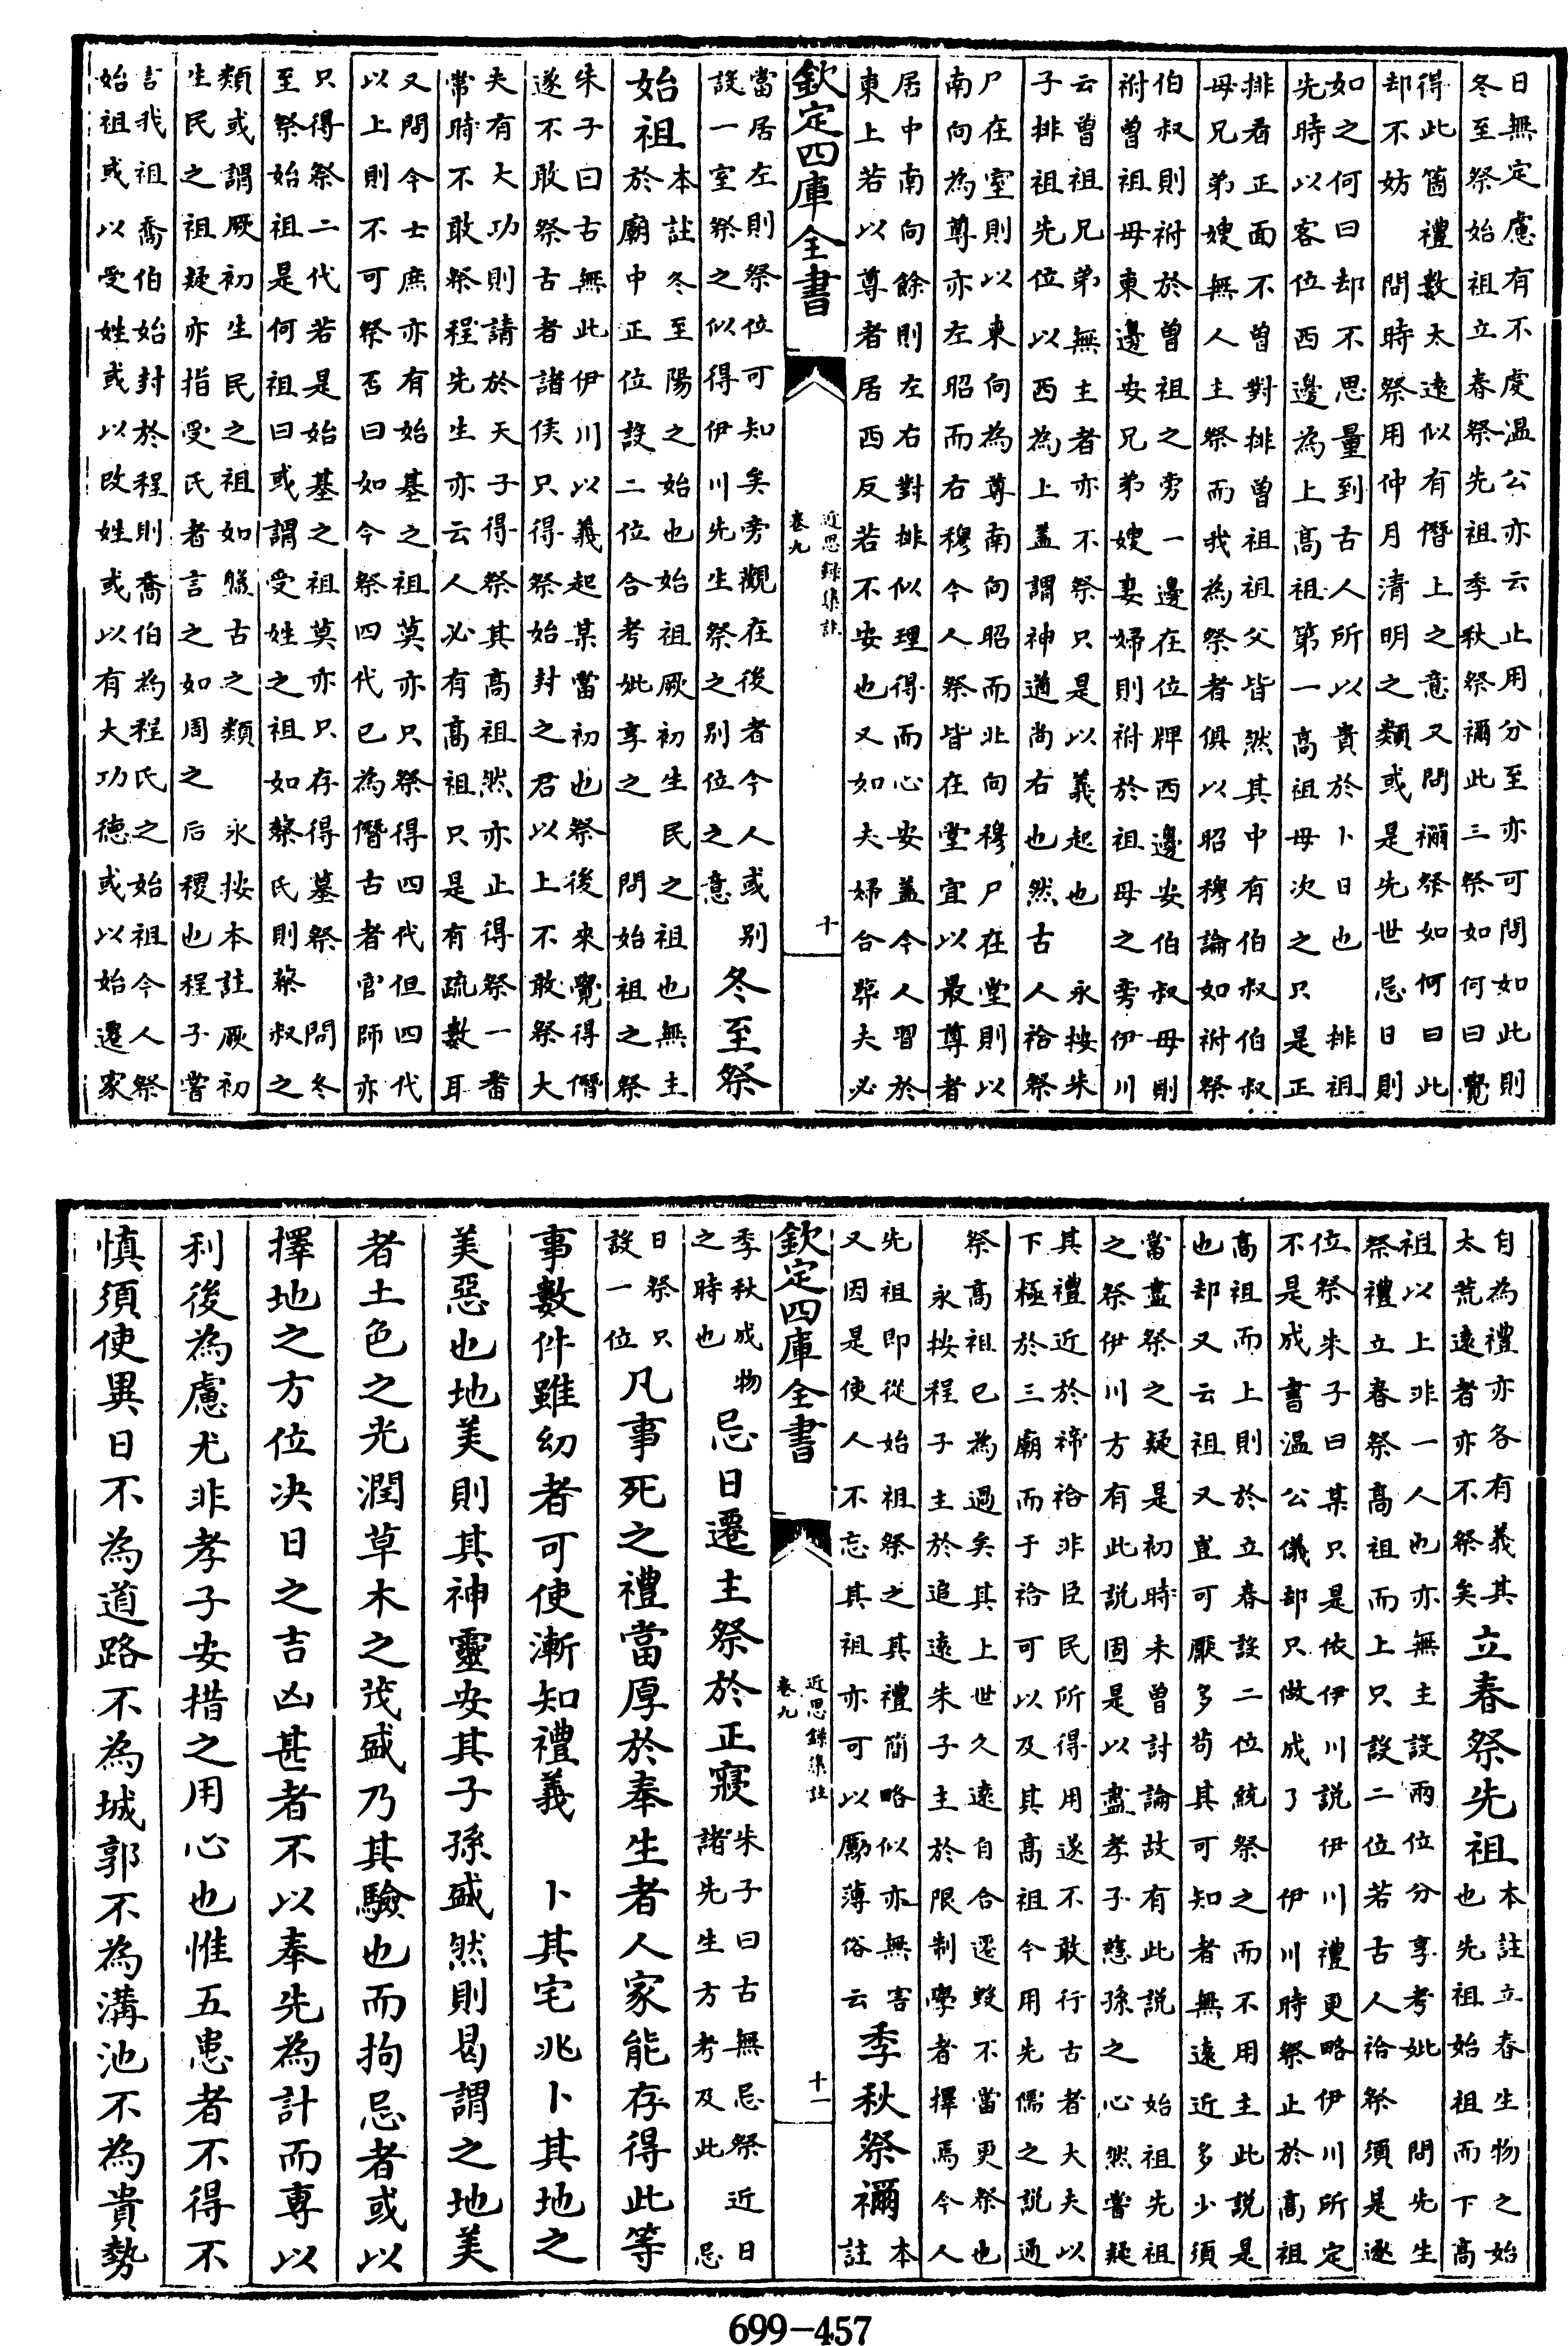 日無定慮有不虔溫公亦云止用分至亦可問如此則
冬至祭始祖立春祭先祖季秋祭禰此三祭如何曰覺
得此箇禮數太遠似有僭上之意又問禰祭如何曰此
却不妨　問時祭用仲月清明之類或是先世忌日則
如之何曰却不思量到古人所以貴於卜日也　排祖
先時以客位西邊為上高祖第一高祖母次之只是正
排看正面不曾對排曾祖祖父皆然其中有伯叔伯叔
母兄弟嫂無人主祭而我為祭者俱以昭穆論如祔祭
伯叔則祔於曾祖之旁一邊在位牌西邊安伯叔母則
祔曾祖母東邊安兄弟嫂妻婦則祔於祖母之旁伊川
云曾祖兄弟無主者亦不祭只是以義起也　永按朱
子排祖先位以西為上蓋謂神道尚右也然古人祫祭
尸在室則以東向為尊南向昭而北向穆尸在堂則以
南向為尊亦左昭而右穆今人祭皆在堂宜以最尊者
居中南向餘則左右對排似理得而心安蓋今人習於
東上若以尊者居西反若不安也又如夫婦合葬夫必
欽定四庫全書
近思錄集註
卷九
十
當居左則祭位可知矣旁觀在後者今人或別
設一室祭之似得伊川先生祭之別位之意
冬至祭
始祖
本註冬至陽之始也始祖厥初生民之祖也無主
於廟中正位設二位合考妣享之　問始祖之祭
朱子曰古無此伊川以義起某當初也祭後來覺得僭
遂不敢祭古者諸侯只得祭始封之君以上不敢祭大
夫有大功則請於天子得祭其高祖然亦止得祭一番
常時不敢祭程先生亦云人必有高祖只是有疏數耳
又問今士庶亦有始基之祖莫亦只祭得四代但四代
以上則不可祭否曰如今祭四代已為僭古者官師亦
只得祭二代若是始基之祖莫亦只存得墓祭　問冬
至祭始祖是何祖曰或謂受姓之祖如蔡氏則蔡叔之
類或謂厥初生民之祖如盤古之類　永按本註厥初
生民之祖疑亦指受氏者言之如周之后稷也程子嘗
言我祖喬伯始封於程則喬伯為程氏之始祖今人祭
始祖或以受姓或以改姓或以有大功德或以始遷家
自為禮亦各有義其
太荒遠者亦不祭矣
立春祭先祖
本註立春生物之始
也先祖始祖而下高
祖以上非一人也亦無主設兩位分享考妣　問先生
祭禮立春祭高祖而上只設二位若古人祫祭須是逐
位祭朱子曰某只是依伊川說伊川禮更略伊川所定
不是成書溫公儀却只做成了　伊川時祭止於高祖
高祖而上則於立春設二位統祭之而不用主此說是
也却又云祖又豈可厭多苟其可知者無遠近多少須
當盡祭之疑是初時未曾討論故有此說　始祖先祖
之祭伊川方有此說固是以盡孝子慈孫之心然嘗疑
其禮近於禘祫非臣民所得用遂不敢行古者大夫以
下極於三廟而于祫可以及其高祖今用先儒之說通
祭高祖已為過矣其上世久遠自合遷毀不當更祭也
永按程子主於追遠朱子主於限制學者擇焉今人
先祖即從始祖祭之其禮簡略似亦無害
又因是使人不忘其祖亦可以勵薄俗云
季秋祭禰
本
註
季秋成物
之時也
忌日遷主祭於正寢
朱子曰古無忌祭近日
諸先生方考及此　忌
欽定四庫全書
近思錄集註
卷九
十一
日祭只
設一位
凡事死之禮當厚於奉生者人家能存得此等
事數件雖幼者可使漸知禮義　卜其宅兆卜其地之
美惡也地美則其神靈安其子孫盛然則曷謂之地美
者土色之光潤草木之茂盛乃其驗也而拘忌者或以
擇地之方位決日之吉凶甚者不以奉先為計而專以
利後為慮尤非孝子安措之用心也惟五患者不得不
慎須使異日不為道路不為城郭不為溝池不為貴勢
699-457